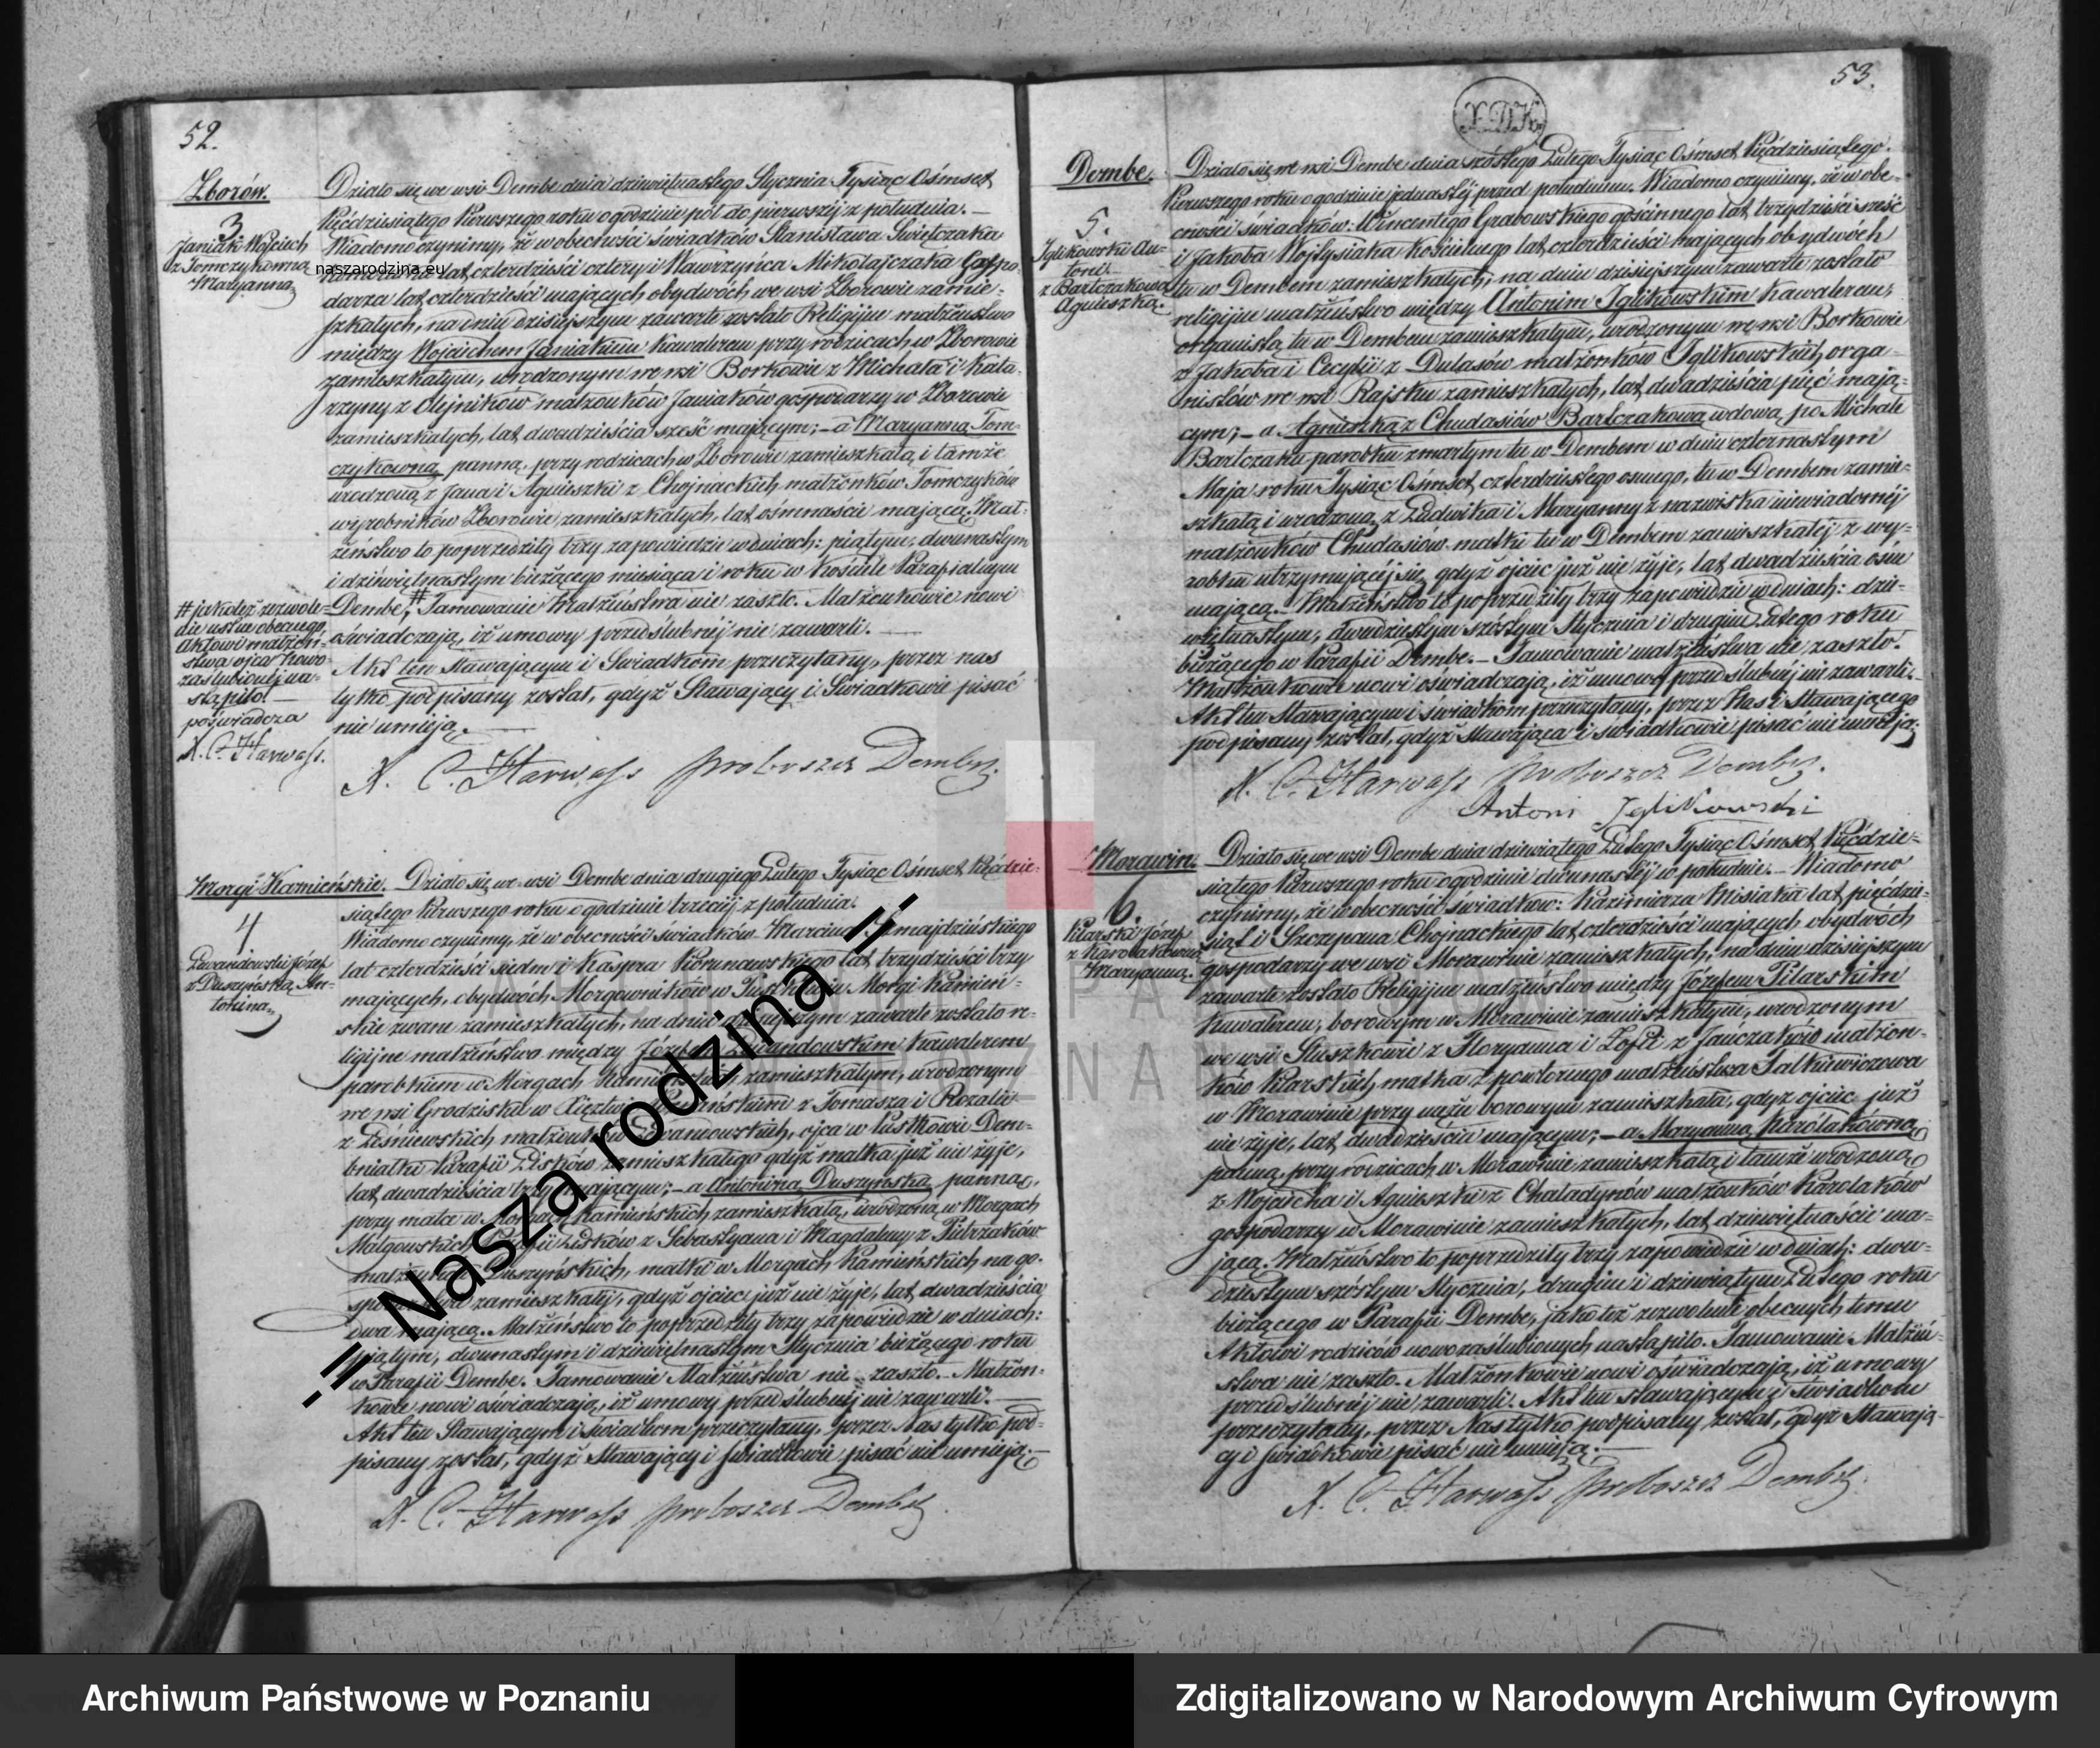 52.
Zborów.
3
Janiak Wojciech
z Tomczykowną
Maryanną
naszarodzina.eu
Działo się we wsi Dembe dnia dziewiętnastego Stycznia Tysiąc Ośmset
Pięćdziesiątego Pierwszego roku o godzinie pół do pierwszéj z południa. —
Wiadomo czynimy, że w obecności świadków Stanisława Świętczaka
lat czterdzieści cztery i Wawrzyńca Mikołajczaka Gospo-
darza lat czterdzieści mających obydwóch we wsi Zborowie zamie-
szkałych, na dniu dzisiejszym zawarte zostało Religijne małżeństwo
między Wojciechem Janiakiem Kawalerem przy rodzicach w Zborowie
zamieszkałym, urodzonym we wsi Borkowie z Michała i Kata-
rzyny z Olejników małżonków Janiaków gospodarzy w Zborowie
zamieszkałych, lat dwadzieścia sześć mającym; — a Maryanną Tom-
czykowną panną, przy rodzicach w Zborowie zamieszkałą i tamże
urodzoną z Jana i Agnieszki z Chojnackich małżonków Tomczyków
wyrobników Zborowie zamieszkałych, lat ośmnaście mającą. Mał-
żeństwo to poprzedziły trzy zapowiedzie w dniach: piątym, dwunastym
i dziewiętnastym bieżącego miesiąca i roku w Kościele Parafialnym
Dembe, # Tamowanie Małżeństwa nie zaszło. Małżonkowie nowi
oświadczają, iż umowy przedślubnéj nie zawarli. —
Akt ten Stawającym i Świadkom przeczytany, przez nas
tylko podpisany został, gdyż Stawający i Świadkowie pisać
nie umieją. —
# jako też zezwole-
nie ustne obecnego
Aktowi małżeń-
stwa ojca nowo
zaślubionéj na-
stąpiło. —
poświadcza
X. C. Harwass.
X. C. Harwass proboszcz Dembs.
Morgi Kamieńskie.
4
Lewandowski Józef
z Duszyńską An-
toniną
Działo się we wsi Dembe dnia drugiego Lutego Tysiąc Ośmset Pięćdzie-
siątego Pierwszego roku o godzinie trzeciéj z południa.
Wiadomo czynimy, że w obecności świadków Marcina
lat czterdzieści siedm i Kaspra Korunowskiego lat trzydzieści trzy
mających, obydwóch Morgowników w Morgi Kamień-
skie zwane zamieszkałych, na dniu dzisiejszym zawarte zostało re-
ligijne małżeństwo między Józefem Lewandowskim Kawalerem
parobkiem w Morgach Kamieńskich zamieszkałym, urodzonym
we wsi Grodzisku w Xięztwie Poznańskiem z Tomasza i Rozalii
z Liśniewskich małżonków Lewandowskich, ojca w Dem-
bniałki Parafii Lisków zamieszkałego gdyż matka już nie żyje,
lat dwadzieścia trzy mającym; — a Antoniną Duszyńską panną,
przy matce w Morgach Kamieńskich zamieszkałą, urodzoną w Morgach
Małgowskich Parafii Lisków z Sebastyana i Magdaleny z Pietrzaków
małżonków Duszyńskich, matki w Morgach Kamieńskich na go-
spodarstwie zamieszkałéj, gdyż ojciec już nie żyje, lat dwadzieścia
dwa mającą. Małżeństwo to poprzedziły trzy zapowiedzie w dniach:
piątym, dwunastym i dziewiętnastym Stycznia bieżącego roku
w Parafii Dembe. Tamowanie Małżeństwa nie zaszło. — Małżon-
kowie nowi oświadczają, iż umowy przedślubnéj nie zawarli. —
Akt ten Stawającym i świadkom przeczytany, przez Nas tylko pod-
pisany został, gdyż Stawający i świadkowie pisać nie umieją. —
X. C. Harwass proboszcz Dembs.
53.
X.D.K.
Dembe.
5.
Iglikowski An-
toni
z Bartczakową
Agnieszką.
Działo się we wsi Dembe dnia szóstego Lutego Tysiąc Ośmset Pięćdziesiątego
Pierwszego roku o godzinie jedenastéj przed południem. Wiadomo czynimy, że w obe-
cności świadków: Wincentego Grabowskiego gościnnego lat trzydzieści sześć
i Jakóba Wojtysiaka Kościelnego lat czterdzieści mających obydwóch
tu w Dembem zamieszkałych, na dniu dzisiejszym zawarte zostało
religijne małżeństwo między Antonim Iglikowskim Kawalerem,
organistą tu w Dembem zamieszkałym, urodzonym we wsi Borkowie
z Jakóba i Cecylii z Dulasów małżonków Iglikowskich orga-
nistów we wsi Rajsku zamieszkałych, lat dwadzieścia pięć mają-
cym; — a Agnieszką z Chudasiów Bartczakową wdową po Michale
Bartczaku parobku zmarłym tu w Dembem w dniu czternastym
Maja roku Tysiąc Ośmset czterdziestego osmego, tu w Dembem zamie-
szkałą i urodzoną z Ludwika i Maryanny z nazwiska niewiadoméj
małżonków Chudasiów matki tu w Dembem zamieszkałéj z wy-
robku utrzymującéj się, gdyż ojciec już nie żyje, lat dwadzieścia ośm
mającą. — Małżeństwo to poprzedziły trzy zapowiedzie w dniach: dzie-
więtnastym, dwudziestym szóstym Stycznia i drugim Lutego roku
bieżącego w Parafii Dembe. — Tamowanie małżeństwa nie zaszło.
Małżonkowie nowi oświadczają, iż umowy przedślubnéj nie zawarli. —
Akt ten Stawającym i świadkom przeczytany, przez Nas i Stawającego
podpisany został, gdyż Stawająca i świadkowie pisać nie umieją.
X. C. Harwass proboszcz Dembs.
Antoni Iglikowski
Morawin.
6.
Pilarski Józef
z Karolakówną
Maryanną.
Działo się we wsi Dembe dnia dziewiątego Lutego Tysiąc Ośmset Pięćdzie-
siątego Pierwszego roku o godzinie dwunastéj w południe. — Wiadomo
czynimy, że w obecności świadków: Kazimierza Misiaka lat pięćdzie-
siąt i Szczepana Chojnackiego lat czterdzieści mających obydwóch
gospodarzy we wsi Morawinie zamieszkałych, na dniu dzisiejszym
zawarte zostało Religijne małżeństwo między Józefem Pilarskim
Kawalerem, borowym w Morawinie zamieszkałym, urodzonym
we wsi Stuszkowie z Floryanna i Zofii z Jańczaków małżon-
ków Pilarskich matka z powtórnego małżeństwa Falkiewiczowa
w Morawinie przy mężu borowym zamieszkała, gdyż ojciec już
nie żyje, lat dwadzieścia mającym; — a Maryanną Karolakówną
panną, przy rodzicach w Morawinie zamieszkałą i tamże urodzoną
z Wojciecha i Agnieszki z Chaładynów małżonków Karolaków
gospodarzy w Morawinie zamieszkałych, lat dziewiętnaście ma-
jącą. Małżeństwo to poprzedziły trzy zapowiedzie w dniach: dwu-
dziestym szóstym Stycznia, drugim i dziewiątym Lutego roku
bieżącego w Parafii Dembe, jako też zezwolenie obecnych temu
Aktowi rodziców nowozaślubionych nastąpiło. Tamowanie Małżeń-
stwa nie zaszło. Małżonkowie nowi oświadczają, iż umowy
przedślubnéj nie zawarli. Akt ten stawającym i świadkom
przeczytany, przez Nas tylko podpisany został, gdyż Stawają-
cy i świadkowie pisać nie umieją. —
X. C. Harwass proboszcz Dembs.
-=Nasza rodzina =-
Archiwum Państwowe w Poznaniu
Zdigitalizowano w Narodowym Archiwum Cyfrowym